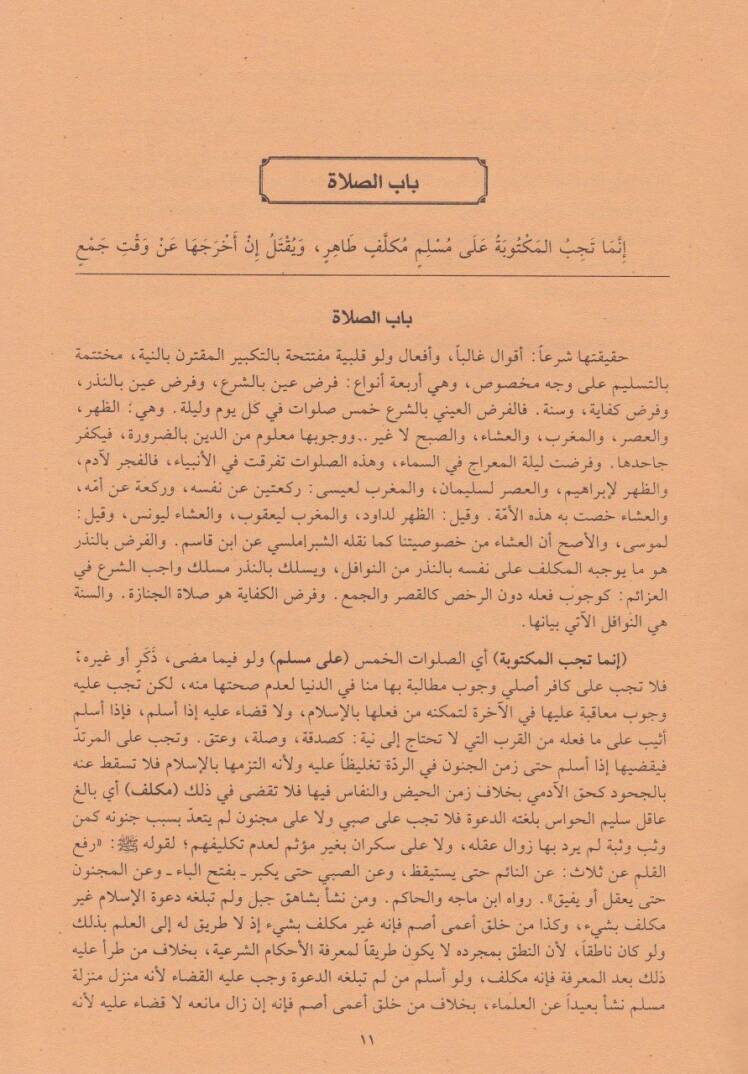 باب الصلاة
إِنَّمَا تَجِبُ المَكْتُوبَةُ عَلَى مُسْلِمٍ مُكَلَّفٍ طَاهِرٍ، وَيُقْتَلُ إِنْ أَخْرَجَهَا عَنْ وَقْتِ جَمْعٍ
باب الصلاة
حقيقتها شرعاً: أقوال غالباً، وأفعال ولو قلبية مفتتحة بالتكبير المقترن بالنية، مختتمة
بالتسليم على وجه مخصوص، وهي أربعة أنواع: فرض عين بالشرع، وفرض عين بالنذر،
وفرض كفاية، وسنة. فالفرض العيني بالشرع خمس صلوات في كل يوم وليلة. وهي: الظهر،
والعصر، والمغرب، والعشاء، والصبح لا غير. ووجوبها معلوم من الدين بالضرورة، فيكفر
جاحدها. وفرضت ليلة المعراج في السماء، وهذه الصلوات تفرقت في الأنبياء، فالفجر لآدم،
والظهر لإبراهيم، والعصر لسليمان، والمغرب لعيسى: ركعتين عن نفسه، وركعة عن أمّه،
والعشاء خصت به هذه الأمّة. وقيل: الظهر لداود، والمغرب ليعقوب، والعشاء ليونس، وقيل:
لموسى، والأصح أن العشاء من خصوصيتنا كما نقله الشبراملسي عن ابن قاسم. والفرض بالنذر
هو ما يوجبه المكلف على نفسه بالنذر من النوافل، ويسلك بالنذر مسلك واجب الشرع في
العزائم: كوجوب فعله دون الرخص كالقصر والجمع. وفرض الكفاية هو صلاة الجنازة. والسنة
هي النوافل الآتي بيانها.
(إنما تجب المكتوبة) أي الصلوات الخمس (على مسلم) ولو فيما مضى، ذَكَرٍ أو غيره؛
فلا تجب على كافر أصلي وجوب مطالبة بها منا في الدنيا لعدم صحتها منه، لكن تجب عليه
وجوب معاقبة عليها في الآخرة لتمكنه من فعلها بالإسلام، ولا قضاء عليه إذا أسلم، فإذا أسلم
أثيب على ما فعله من القرب التي لا تحتاج إلى نية: كصدقة، وصلة، وعتق. وتجب على المرتدّ
فيقضيها إذا أسلم حتى زمن الجنون في الردّة تغليظاً عليه ولأنه التزمها بالإسلام فلا تسقط عنه
بالجحود كحق الآدمي بخلاف زمن الحيض والنفاس فيها فلا تقضى في ذلك (مكلف) أي بالغ
عاقل سليم الحواس بلغته الدعوة فلا تجب على صبي ولا على مجنون لم يتعدّ بسبب جنونه كمن
وثب وثبة لم يرد بها زوال عقله، ولا على سكران بغير مؤثم لعدم تكليفهم؛ لقوله ﷺ: «رفع
القلم عن ثلاث: عن النائم حتى يستيقظ، وعن الصبي حتى يكبر ـ بفتح الباء ـ وعن المجنون
حتى يعقل أو يفيق». رواه ابن ماجه والحاكم. ومن نشأ بشاهق جبل ولم تبلغه دعوة الإسلام غير
مكلف بشيء، وكذا من خلق أعمى أصم فإنه غير مكلف بشيء إذ لا طريق له إلى العلم بذلك
ولو كان ناطقاً، لأن النطق بمجرده لا يكون طريقاً لمعرفة الأحكام الشرعية، بخلاف من طرأ عليه
ذلك بعد المعرفة فإنه مكلف، ولو أسلم من لم تبلغه الدعوة وجب عليه القضاء لأنه منزل منزلة
مسلم نشأ بعيداً عن العلماء، بخلاف من خلق أعمى أصم فإنه إن زال مانعه لا قضاء عليه لأنه
١١